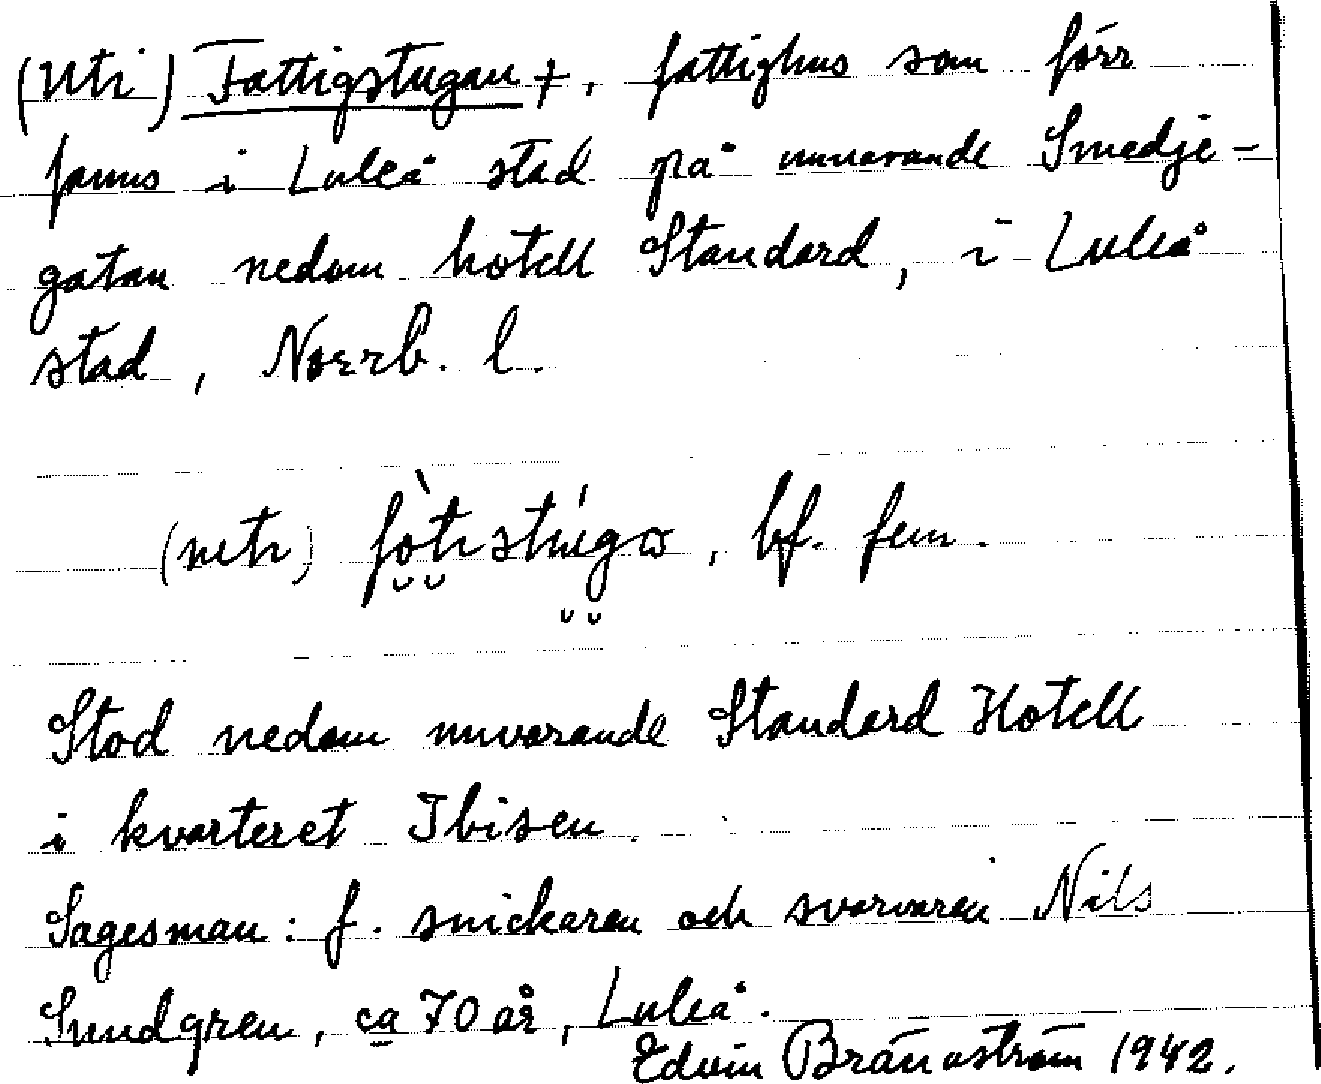 (Uti) Fattigstugan +, fattighus som förr
fanns i Luleå stad på nuvarande Smedje-
gatan nedom hotell Standard, i Luleå
stad, Norrb. l.
(uti) , bf. fem.
Stod nedom nuvarande Standard Hotell
i kvarteret Ibisen.
Sagesman: f. snickaren och svarvaren Nils
Sundgren, ca 70 år, Luleå.
Edvin Brännström 1942.